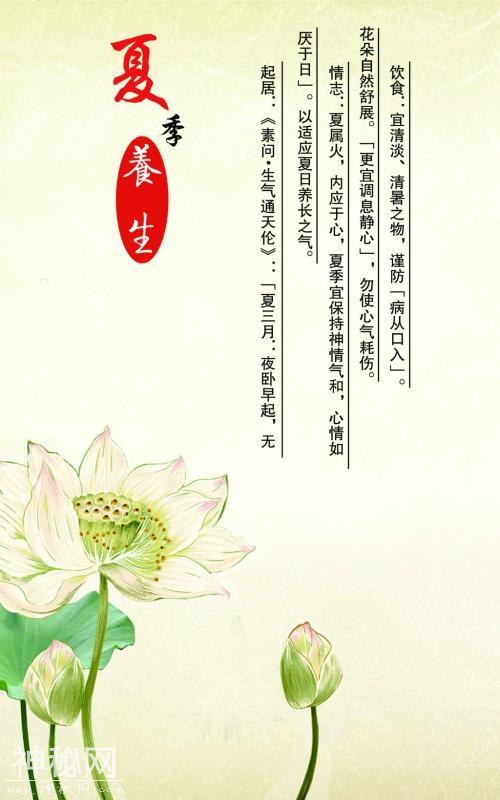 夏
季
養生
起居：《素问•生气通天伦》：「夏三月：夜卧早起，无
厌于日」。以适应夏日养长之气。
情志：夏属火，内应于心，夏季宜保持神情气和，心情如
花朵自然舒展。「更宜调息静心」，勿使心气耗伤。
饮食：宜清淡、清暑之物，谨防「病从口入」。
神秘网